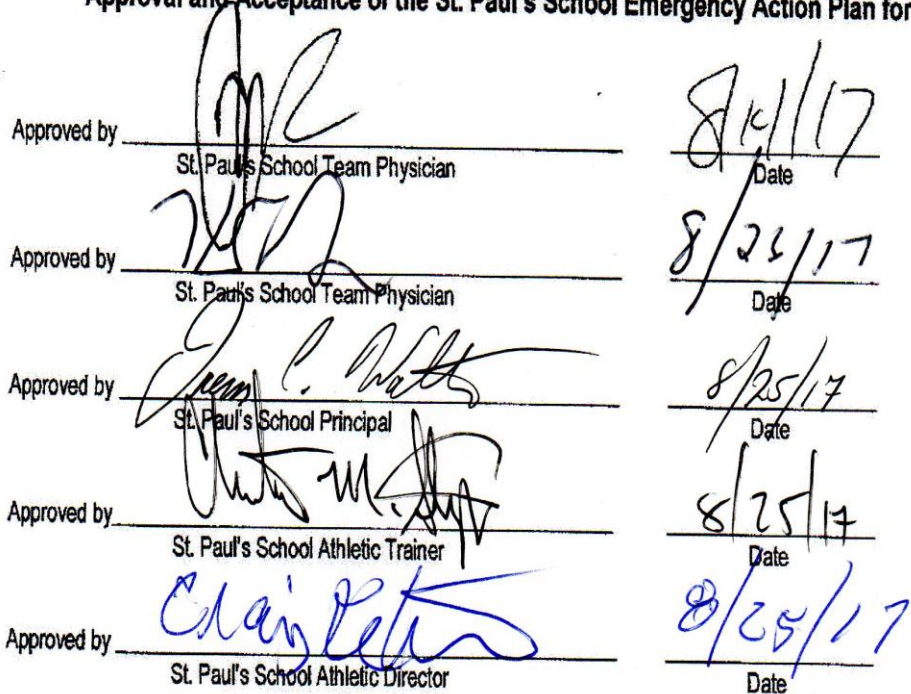 Approval and Acceptance of the St. Paul's School Emergency Action Plan for
Approved by
8/ /17
St. Paul's School Team Physician
Date
Approved by
8/23/17
St. Paul's School Team Physician
Date
Approved by
8/25/17
St. Paul's School Principal
Date
Approved by
8/25/17
St. Paul's School Athletic Trainer
Date
Approved by Craig
8/25/17
St. Paul's School Athletic Director
Date